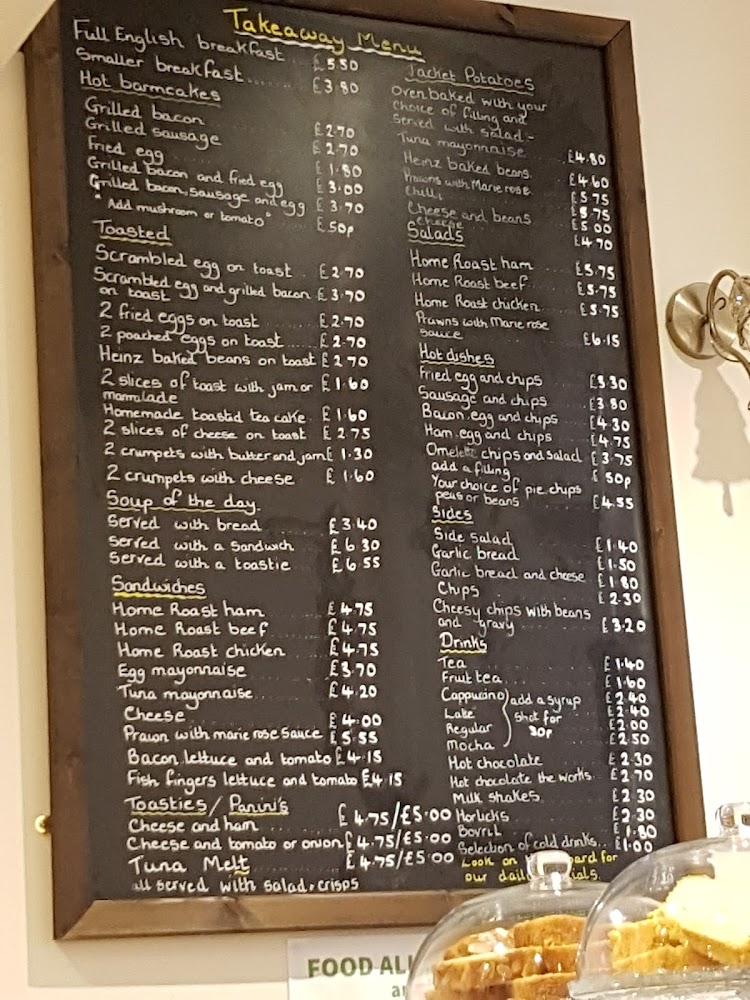 Takeaway Menu
Full English breakfast £5.50
Smaller breakfast £3.80
Hot barmcakes
Grilled bacon £2.70
Grilled sausage £2.70
Fried egg £1.80
Grilled bacon and fried egg £3.00
Grilled bacon, sausage and egg £3.70
"Add mushroom or tomato" £50p
Toasted
Scrambled egg on toast £2.70
Scrambled egg and grilled bacon £3.70
on toast
2 fried eggs on toast £2.70
2 poached eggs on toast £2.70
Heinz baked beans on toast £2.70
2 slices of toast with jam or £1.60
marmalade
Homemade toasted tea cake £1.60
2 slices of cheese on toast £2.75
2 crumpets with butter and jam £1.30
2 crumpets with cheese £1.60
Soup of the day
Served with bread £3.40
Served with a sandwich £6.30
Served with a toastie £6.55
Sandwiches
Home Roast ham £4.75
Home Roast beef £4.75
Home Roast chicken £4.75
Egg mayonnaise £3.70
Tuna mayonnaise £4.20
Cheese £4.00
Prawn with marie rose sauce £5.55
Bacon, lettuce and tomato £4.15
Fish fingers lettuce and tomato £4.15
Toasties/Panini's
Cheese and ham £4.75/£5.00
Cheese and tomato or onion £4.75/£5.00
Tuna Melt £4.75/£5.00
all served with salad & crisps
Jacket Potatoes
Oven baked with your
choice of filling and
served with salad:-
Tuna mayonnaise £4.80
Heinz baked beans £4.60
Prawns with Marie rose £5.75
Chilli £5.75
Cheese and beans £5.00
Cheese £4.70
Salads
Home Roast ham £5.75
Home Roast beef £5.75
Home Roast chicken £5.75
Prawns with Marie rose
sauce £6.15
Hot dishes
Fried egg and chips £3.30
Sausage and chips £3.80
Bacon, egg and chips £4.30
Ham, egg and chips £4.75
Omelette chips and salad £3.75
add a filling £50p
Your choice of pie, chips
peas or beans £4.55
Sides
Side salad £1.40
Garlic bread £1.50
Garlic bread and cheese £1.80
Chips £2.30
Cheesy chips with beans
and gravy £3.20
Drinks
Tea £1.40
Fruit tea £1.60
Cappucino £2.40
Late £2.40
Regular £2.00
Mocha £2.50
add a syrup
shot for
30p
Hot chocolate £2.30
Hot chocolate the works £2.70
Milk shakes £2.30
Horlicks £2.30
Bovril £1.80
Selection of cold drinks £1.00
Look on
for
our
FOOD